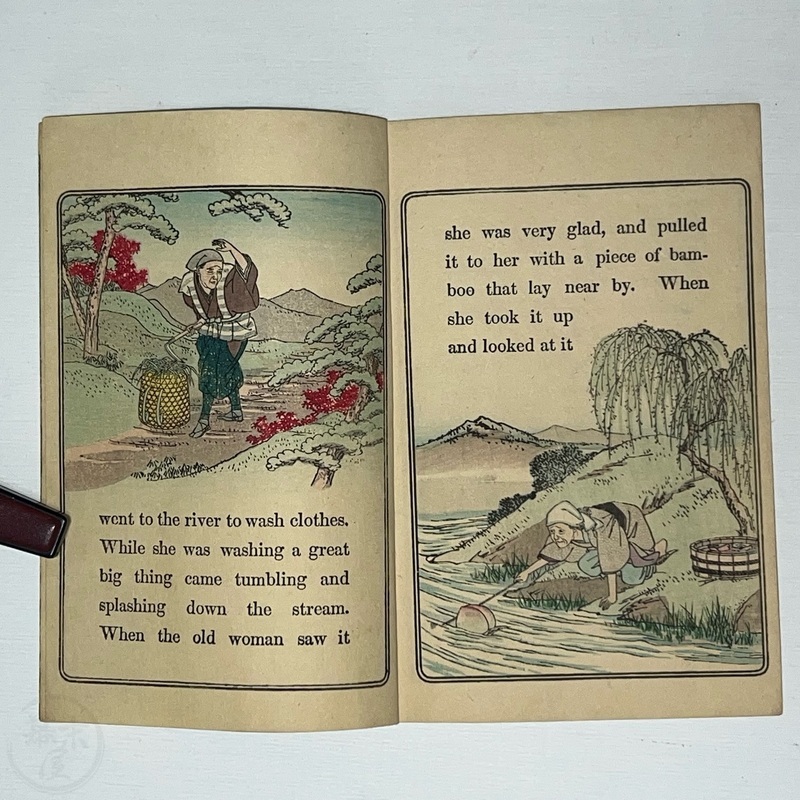 went to the river to wash clothes.
While she was washing a great
big thing came tumbling and
splashing down the stream.
When the old woman saw it
she was very glad, and pulled
it to her with a piece of bam-
boo that lay near by. When
she took it up
and looked at it